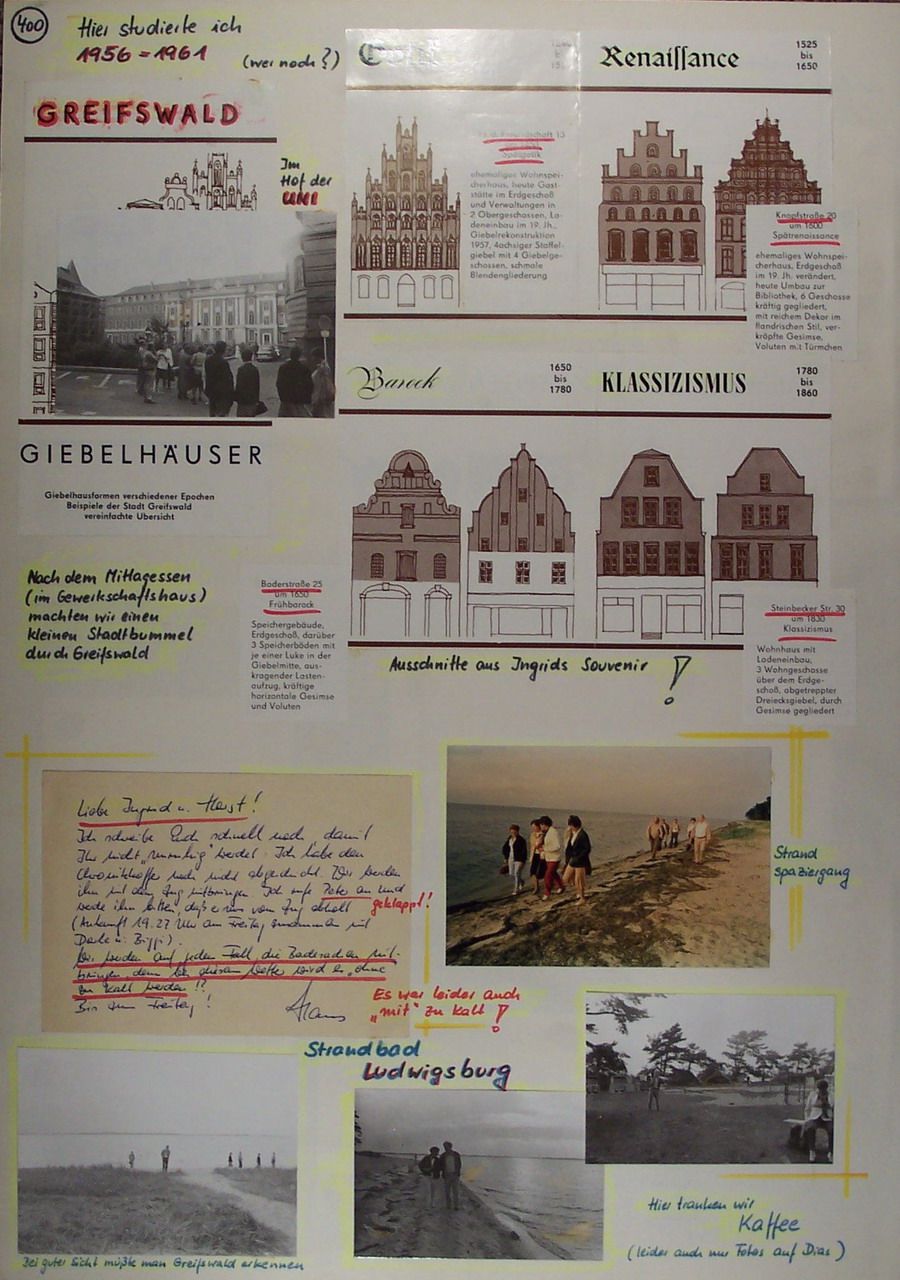 400
Hier studierte ich
1956-1961 (wer noch?)
GREIFSWALD
Im
Hof der
UNI
GIEBELHÄUSER
Giebelhausformen verschiedener Epochen
Beispiele der Stadt Greifswald
vereinfachte Übersicht
Renaissance
1525
bis
1650
Spätgotik
ehemaliges Wohnspei-
cherhaus, heute Gast-
stätte im Erdgeschoß
und Verwaltungen in
2 Obergeschossen, La-
deneinbau im 19. Jh.,
Giebelrekonstruktion
1957, 4achsiger Staffel-
giebel mit 4 Giebelge-
schossen, schmale
Blendengliederung
Knopfstraße 20
um 1600
Spätrenaissance
ehemaliges Wohnspei-
cherhaus, Erdgeschoß
im 19. Jh. verändert,
heute Umbau zur
Bibliothek, 6 Geschosse
kräftig gegliedert,
mit reichem Dekor im
flandrischen Stil, ver-
kröpfte Gesimse,
Voluten mit Türmchen
Barock
1650
bis
1780
KLASSIZISMUS
1780
bis
1860
Nach dem Mittagessen
(im Gewerkschaftshaus)
machten wir einen
kleinen Stadtbummel
durch Greifswald
Baderstraße 25
um 1650
Frühbarock
Speichergebäude,
Erdgeschoß, darüber
3 Speicherböden mit
je einer Luke in der
Giebelmitte, aus-
kragender Lasten-
aufzug, kräftige
horizontale Gesimse
und Voluten
Ausschnitte aus Ingrids Souvenir !
Steinbecker Str. 30
um 1830
Klassizismus
Wohnhaus mit
Ladeneinbau,
3 Wohngeschosse
über dem Erdge-
schoß, abgetreppter
Dreiecksgiebel, durch
Gesimse gegliedert
Liebe Ingrid u. Horst!
Ich schreibe Euch schnell noch, damit
Ihr nicht "unruhig" werdet. Ich habe den
noch nicht abgeschickt. Wir werden
ihn mit dem Zug mitbringen. Ich rufe Peter an und
werde ihn bitten, daß er uns vom Zug abholt geklappt!
(Ankunft 19.27 Uhr am Freitag zusammen mit
Wir werden auf jeden Fall die Badesachen mit-
bringen, denn bei diesem Wetter wird es ohne
zu kalt werden!?
Bis zum Freitag!
Klaus
Es war leider auch
"mit" zu kalt !
Strand
spaziergang
Strandbad
Ludwigsburg
Bei guter Sicht müßte man Greifswald erkennen
Hier tranken wir
Kaffee
(leider auch nur Fotos auf Dias)